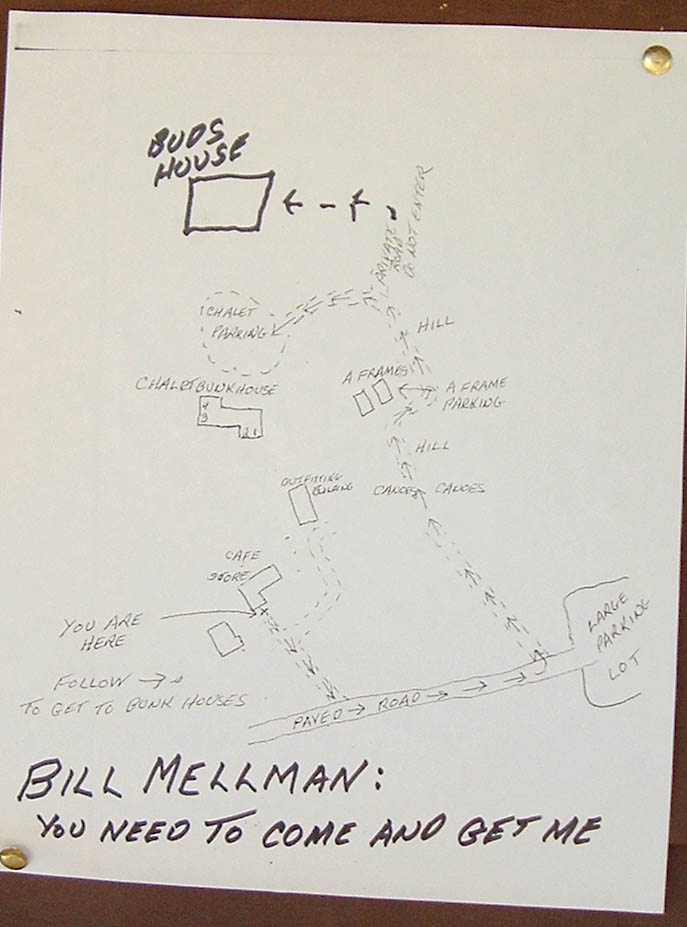 BUDS
HOUSE
PRIVATE
ROAD
DO NOT ENTER
CHALET
PARKING
HILL
A FRAMES
A FRAME
PARKING
CHALET BUNKHOUSE
4
3
2 1
HILL
OUTFITTING
BUILDING
CANOES CANOES
CAFE
STORE
YOU ARE
HERE
LARGE
PARKING
LOT
FOLLOW →
TO GET TO BUNK HOUSES
PAVED → ROAD → → → →
BILL MELLMAN:
YOU NEED TO COME AND GET ME